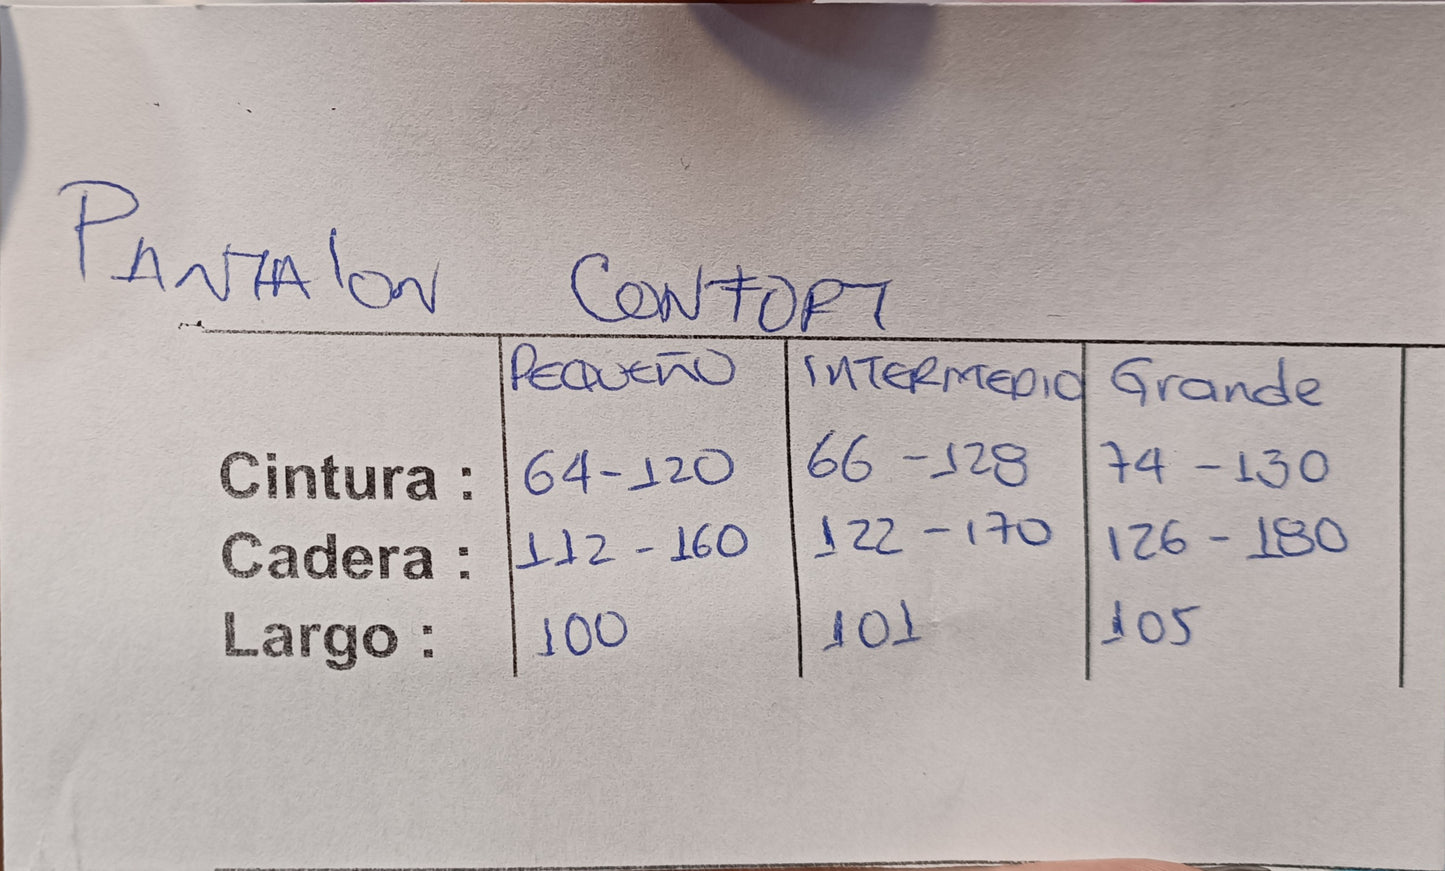 Pantalon Confort
PEQUEÑO INTERMEDIO Grande
Cintura : 64-120 66-128 74-130
Cadera : 112-160 122-170 126-180
Largo : 100 101 105